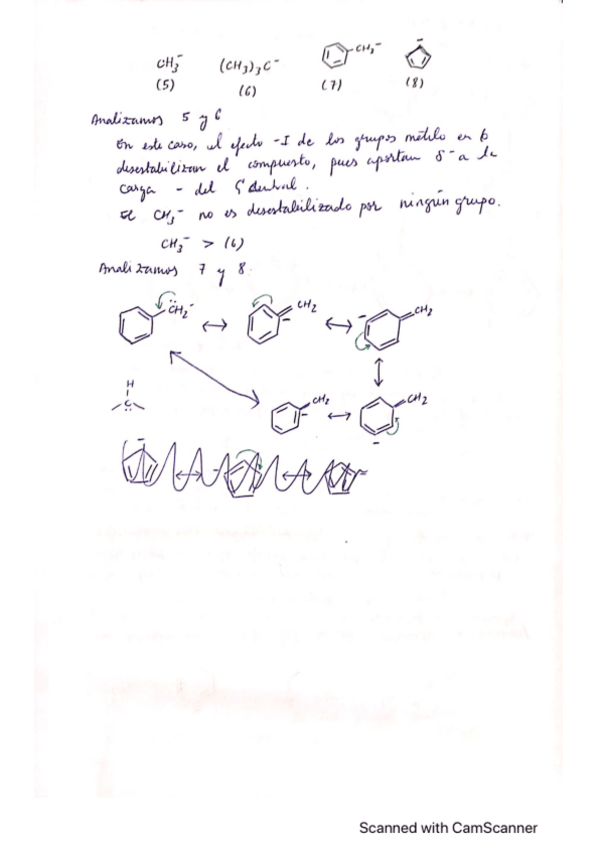 CH₃⁻ (CH₃)₃C⁻ CH₂⁻
(5) (6) (7) (8)
Analizamos 5 y 6
En este caso, el efecto -I de los grupos metilo en 6
desestabilizan el compuesto, pues aportan δ⁻ a la
carga - del C central.
El CH₃⁻ no es desestabilizado por ningún grupo.
CH₃⁻ > (6)
Analizamos 7 y 8.
CH₂⁻ ↔ CH₂ ↔ CH₂
H
C
CH₂ ↔ CH₂
Scanned with CamScanner